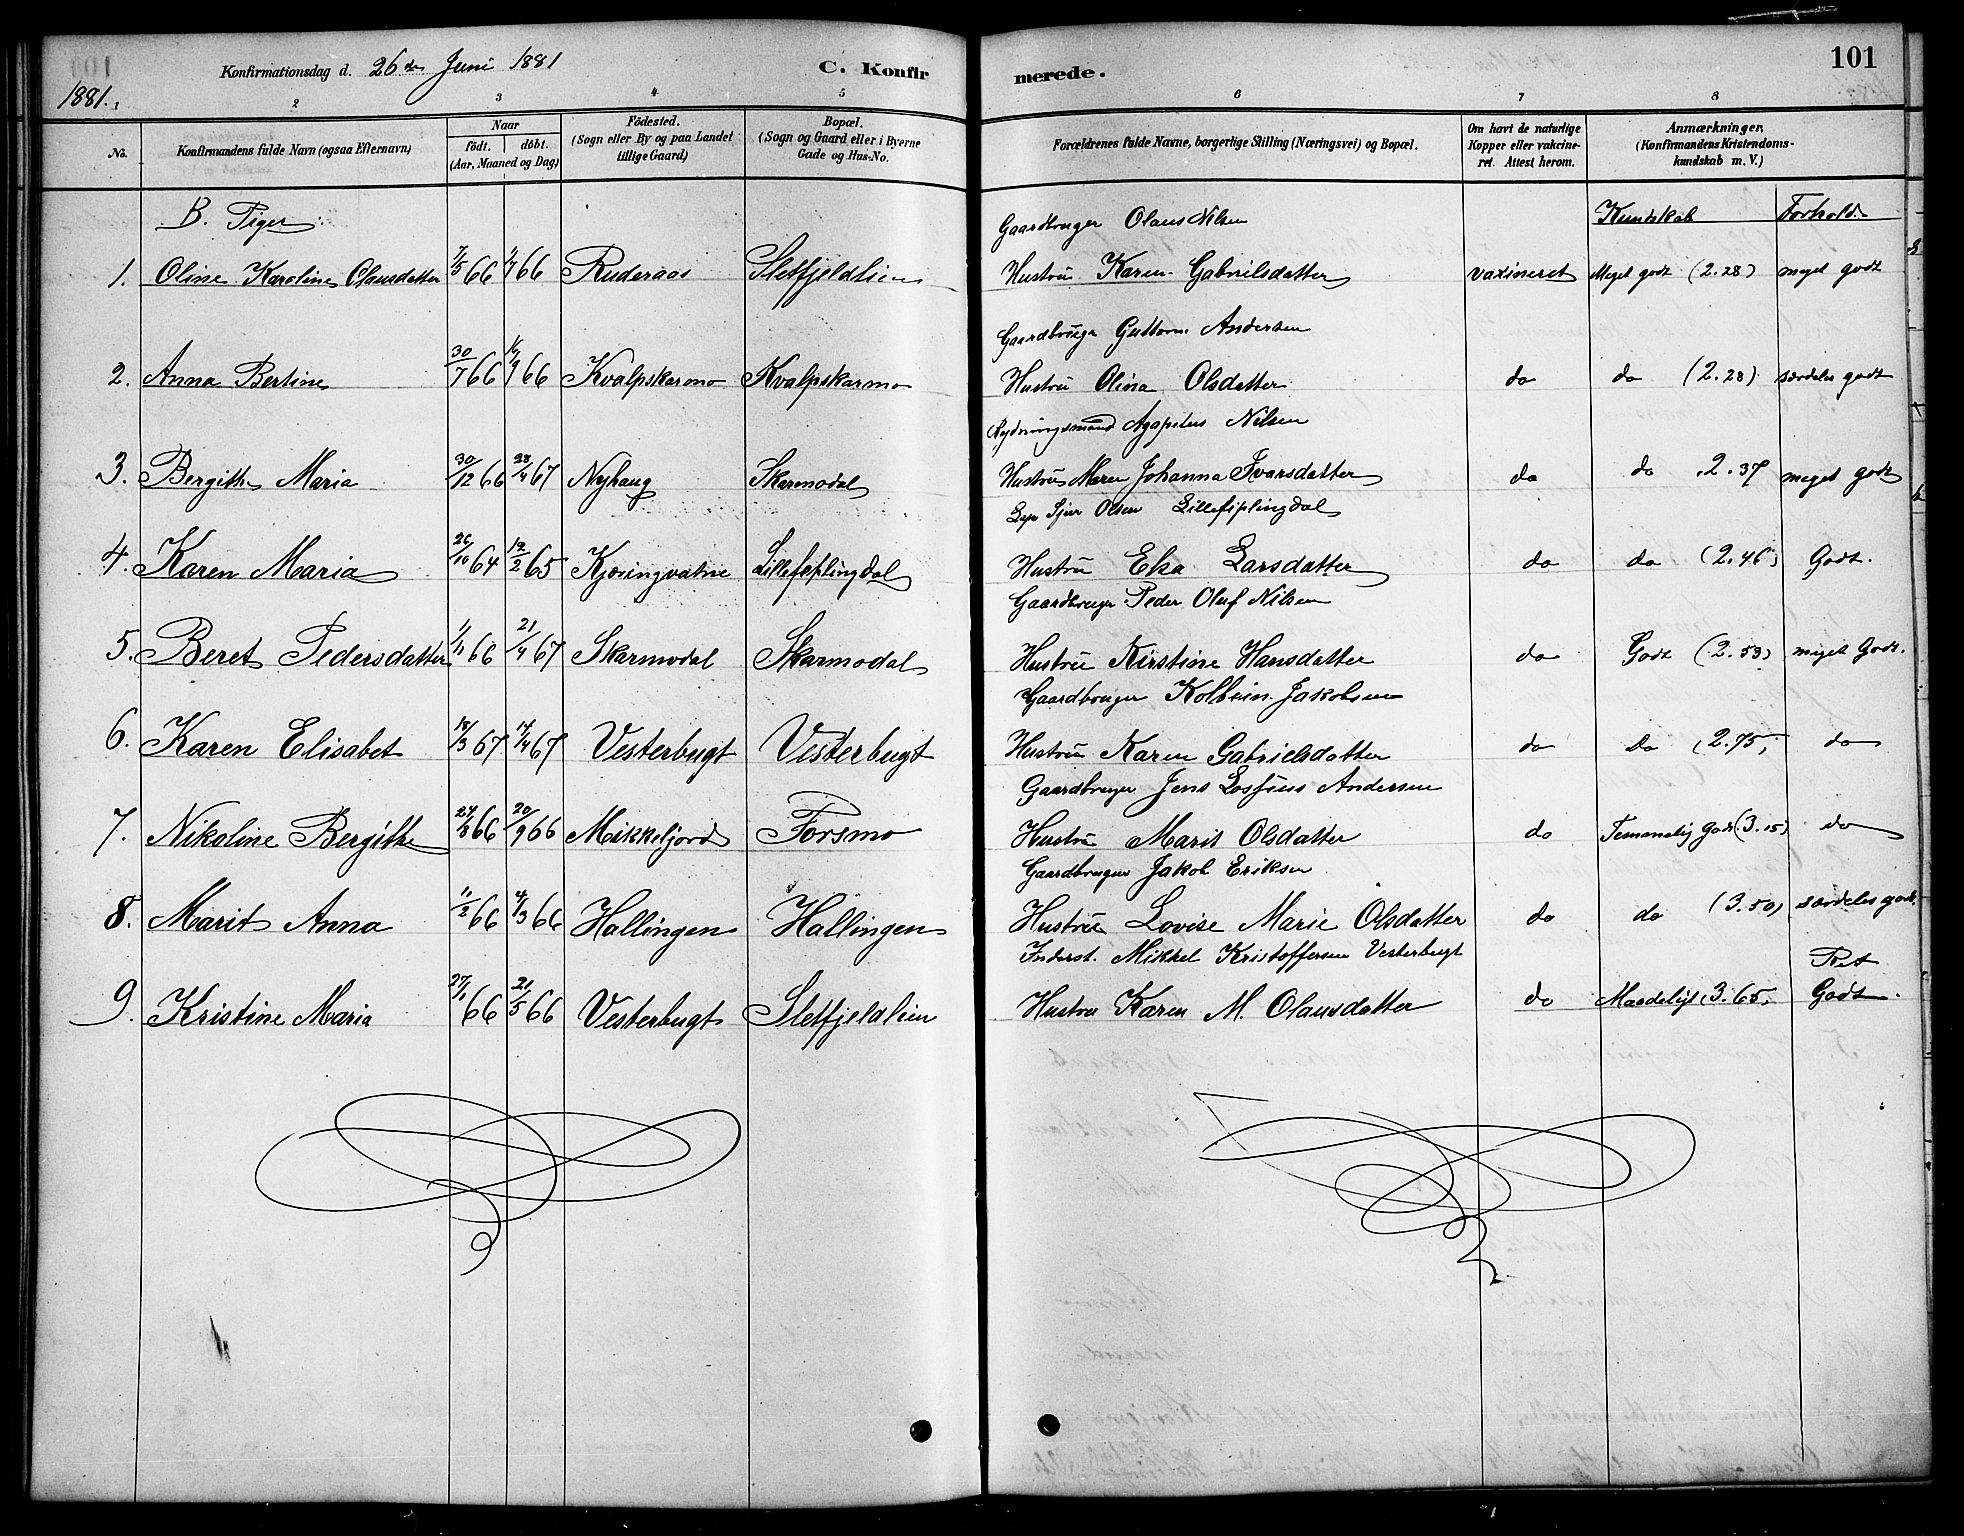 Konfirmationsdag d. 26de Juni 1881 C. Konfirmerede. 101
1881. 2 3 4 5 6 7 8
No. Konfirmandens fulde Navn (ogsaa Efternavn)
Naar
födt. döbt.
(Aar, Maaned og Dag)
Födested.
(Sogn eller By og paa Landet
tillige Gaard)
Bopæl.
(Sogn og Gaard eller i Byerne
Gade og Hus-No.
Forældrenes fulde Navne, borgerlige Stilling (Næringsvei) og Bopæl.
Om havt de naturlige
Kopper eller vakcine-
ret. Attest herom.
Anmærkninger.
(Konfirmandens Kristendoms-
kundskab m. V.)
B. Piger: Kundskab Forhold.
Gaardbruger Olaus Nilsen
1. Oline Karoline Olausdatter 7/5 66 1/7 66 Ruderaas Sletfjeldlien Hustru Karen Gabrielsdatter vaxineret Meget godt (2.28) meget godt
Gaardbruger Guttorm Andersen
2. Anna Bertine 30/7 66 16/9 66 Kvalpskarmo Kvalpskarmo Hustru Olina Olsdatter do do (2.28) særdeles godt
Rydningsmand Agapetus Nilsen
3. Bergithe Maria 30/12 66 28/4 67 Nyhaug Skarmodal Hustru Maren Johanna Ivarsdatter do do 2.37 meget godt
Sjur Olsen Lillefiplingdal
4. Karen Maria 26/10 64 12/2 65 Kjæringvatne Lillefiplingdal Hustru Elsa Larsdatter do do (2.46) Godt.
Gaardbruger Peder Oluf Nilsen
5. Beret Pedersdatter 1/11 66 21/4 67 Skarmodal Skarmodal Hustru Kirstine Hansdatter do Godt (2.53) meget Godt.
Gaardbruger Kolbein Jakobsen
6. Karen Elisabet 18/3 67 14/4 67 Vesterbugt Vesterbugt Hustru Karen Gabrielsdatter do Do (2.75) do
Gaardbruger Jens Andersen
7. Nikoline Bergithe 24/8 66 20/9 66 Mikkeljord Forsmo Hustru Marit Olsdatter do Temmelig godt (3.15) do
Gaardbruger Jakob Eriksen
8. Marit Anna 11/2 66 4/3 66 Hallingen Hallingen Hustru Lovise Marie Olsdatter do do (3.50) særdeles godt.
Inderst. Mikkel Kristoffersen Vesterbugt
9. Kristine Maria 27/1 66 21/5 66 Vesterbugt Sletfjeldlien Hustru Karen M. Olausdatter do Maadeligt 3.65. Ret Godt.